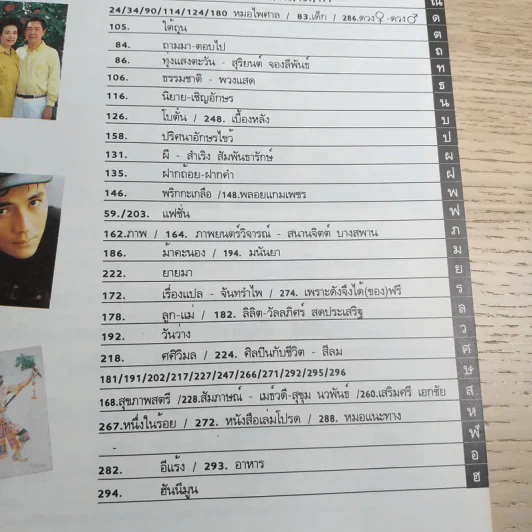 24/34/90/114/124/180 หมอไพศาล / 83.เด็ก / 286.ดวง♀-ดวง♂ ด
105. ใต้ถุน ต
84. ถามมา-ตอบไป ถ
86. ทุ่งแสงตะวัน - สุริยนต์ จองลีพันธ์ ท
106. ธรรมชาติ - พวงแสด ธ
116. นิยาย-เชิญอักษร น
126. โบตั๋น / 248. เบื้องหลัง บ
158. ปริศนาอักษรไขว้ ป
131. ผี - สำเริง สัมพันธารักษ์ ผ
135. ฝากถ้อย-ฝากคำ ฝ
146. พริกกะเกลือ /148.พลอยแกมเพชร พ
59./203. แฟชั่น ฟ
162.ภาพ / 164. ภาพยนตร์วิจารณ์ - สนานจิตต์ บางสพาน ภ
186. ม้าคะนอง / 194. มนันยา ม
222. ยายมา ย
172. เรื่องแปล - จันทรำไพ / 274. เพราะดังจึงได้(ของ)ฟรี ร
178. ลูก-แม่ / 182. ลิลิต-วัลลภิศร์ สดประเสริฐ ล
192. วันว่าง ว
218. ศศิวิมล / 224. ศิลปินกับชีวิต - สีลม ศ
181/191/202/217/227/247/266/271/292/295/296 ษ
168.สุขภาพสตรี /228.สัมภาษณ์ - เมธ์วดี-สุขุม นวพันธ์ /260.เสริมศรี เอกชัย ส
267.หนึ่งในร้อย / 272. หนังสือเล่มโปรด / 288. หมอแนะทาง ห
- ฬ
282. อีแร้ง / 293. อาหาร อ
294. ฮันนีมูน ฮ